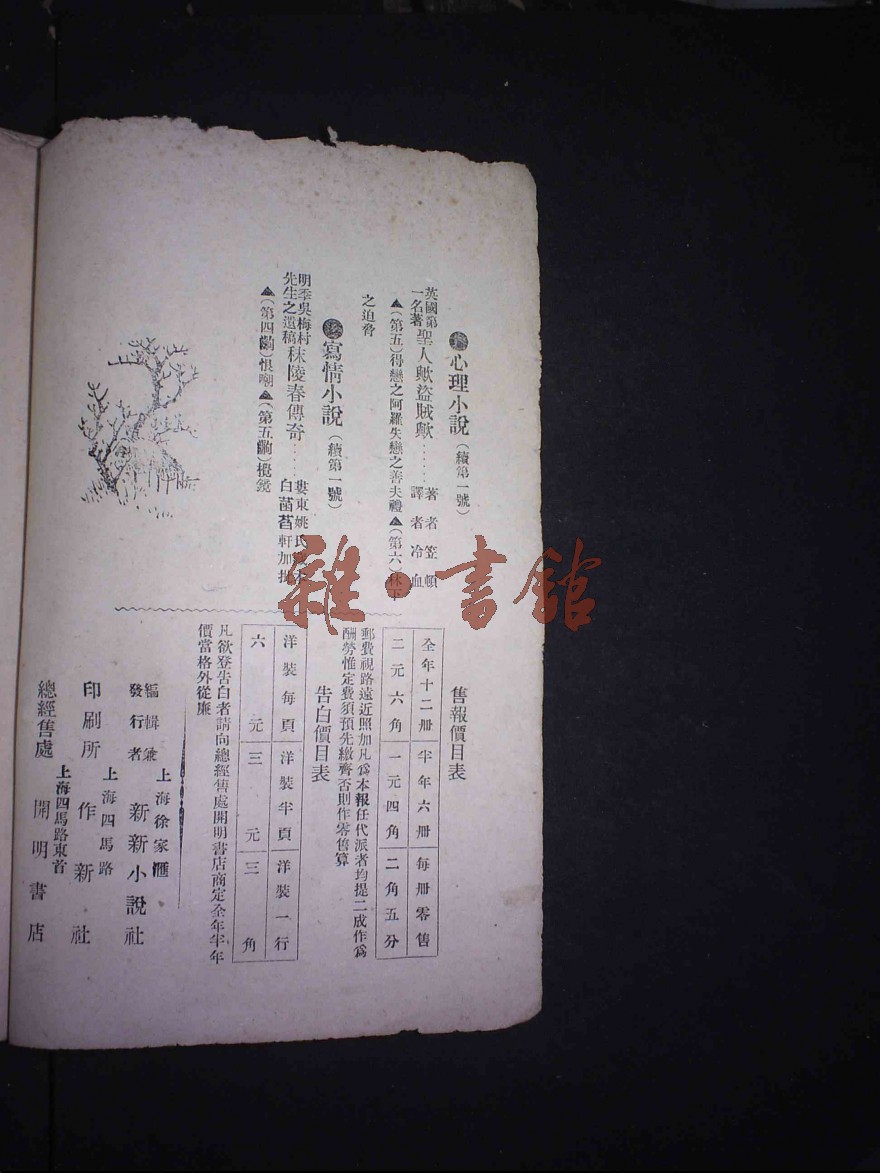 心理小說(續第一號)
英國第一名著聖人歟盜賊歟……著者笠頓 譯者冷血
▲(第五)得戀之阿羅失戀之善夫禮▲(第六)林下
之迫脅
寫情小說(續第一號)
明季吳梅村先生之遺稿秣陵春傳奇……婁東姚氏 白菡萏軒加批
▲(第四齣)恨嘲▲(第五齣)攬鏡
售報價目表
全年十二冊 半年六冊 每冊零售
二元六角 一元四角 二角五分
郵費視路遠近照加凡為本報任代派者均提二成作為
酬勞惟定費須預先繳齊否則作零售算
告白價目表
洋裝每頁 洋裝半頁 洋裝一行
六元 三元 三角
凡欲登告白者請向總經售處開明書店商定全年半年
價當格外從廉
編輯兼發行者 上海徐家滙 新新小說社
印刷所 上海四馬路 作新社
總經售處 上海四馬路東首 開明書店
雜·書館